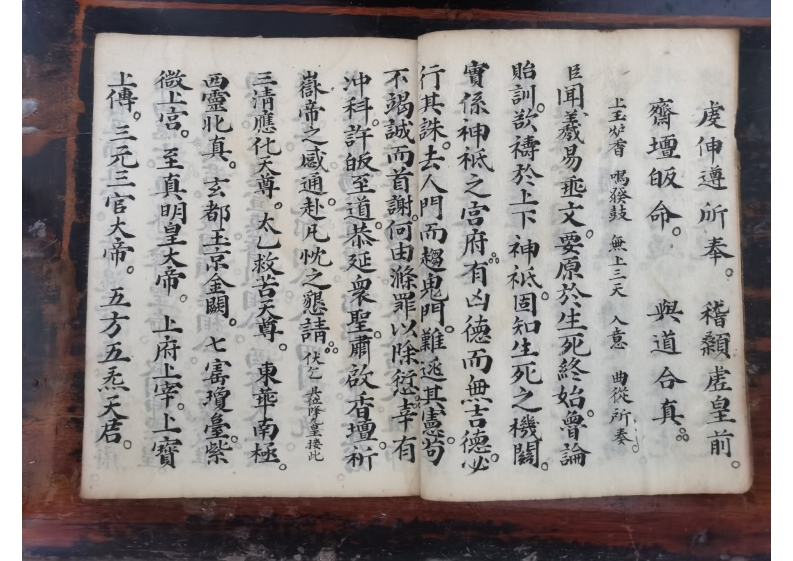 虔伸遵所奉。　稽顙虛皇前。
齋壇皈命。　與道合真。
上玉炉香　鳴發鼓　無上三天　入意　曲從所奏。
臣聞羲易垂文。要原於生死終始。魯論
貽訓。欲禱於上下神祇。固知生死之機關。
實係神祇之宫府。有凶德而無吉德。必
行其誅。去人門而趨鬼門。難逃其憲。苟
不竭誠而首謝。何由滌罪以除愆。幸有
冲科。許皈至道。恭延衆聖。肅啟香壇。祈
嶽帝之感通。赴凡忱之懇請。伏乞　隆皇接此
三清應化天尊。太乙救苦天尊。東華南極。
西靈北真。玄都玉京金闕。七寳瓊臺。紫
微上宮。至真明皇大帝。上府上宰。上寳
上傳。三元三官大帝。五方五炁天君。